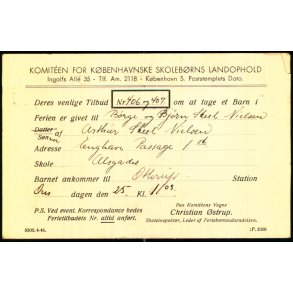 KOMITÉEN FOR KØBENHAVNSKE SKOLEBØRNS LANDOPHOLD
Ingolfs Allé 35 - Tlf. Am. 2118 - København S. Poststemplets Dato.
Deres venlige Tilbud Nr 406 og 407 om at tage et Barn i
Ferien er givet til Børge og Bjørn Skeel Nielsen
Datter af Arthur Skeel Nielsen
Søn
Adresse Enghave Passage 1
Skole Alsgades
Barnet ankommer til Station
Ons dagen den 25. Kl. 11 03.
P.S. Ved event. Korrespondance bedes
Ferietilbudets Nr. altid anført.
Paa Komitéens Vegne
Christian Østrup.
Skoleinspektør, Leder af Ferieborneudsendelsen.